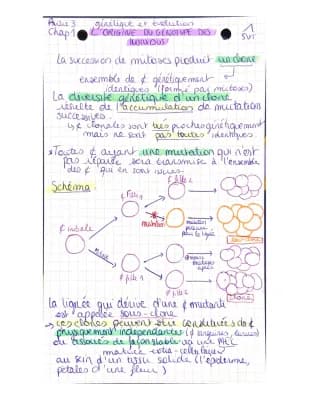 génétique et évolution
Chap 1 L'ORIGINE DU GÉNOTYPE DES
INDIVIDUS
1
SVT
La succession de mitoses produit un clone
ensemble de ¢ génétiquement
identiques (formé par mitoses)
La diversité génétique d'un clone
résulte de l'accumulation de mutations
successives.
¢ clonales sont très proches génétiquement
mais ne sont pas toutes identiques.
Toutes ¢ ayant une mutation qui n'est
pas réparée sera transmise à l'ensemble
des ¢ qui en sont issues.
Schéma
¢ fille 2
¢ fille 1
¢ initiale
mutation
mutation
présente
dans la lignée
sous-clone
mitose
¢ fille 1
mitoses
après
¢ fille 2
clone
La lignée qui dérive d'une ¢ mutante
est appelée sous-clone
ces clones peuvent être constitués de ¢
physiquement indépendantes
ou associés de façon stable via une MEC
matrice extra-cellulaire
au sein d'un tissu solide (l'épiderme,
pétales d'une fleur)